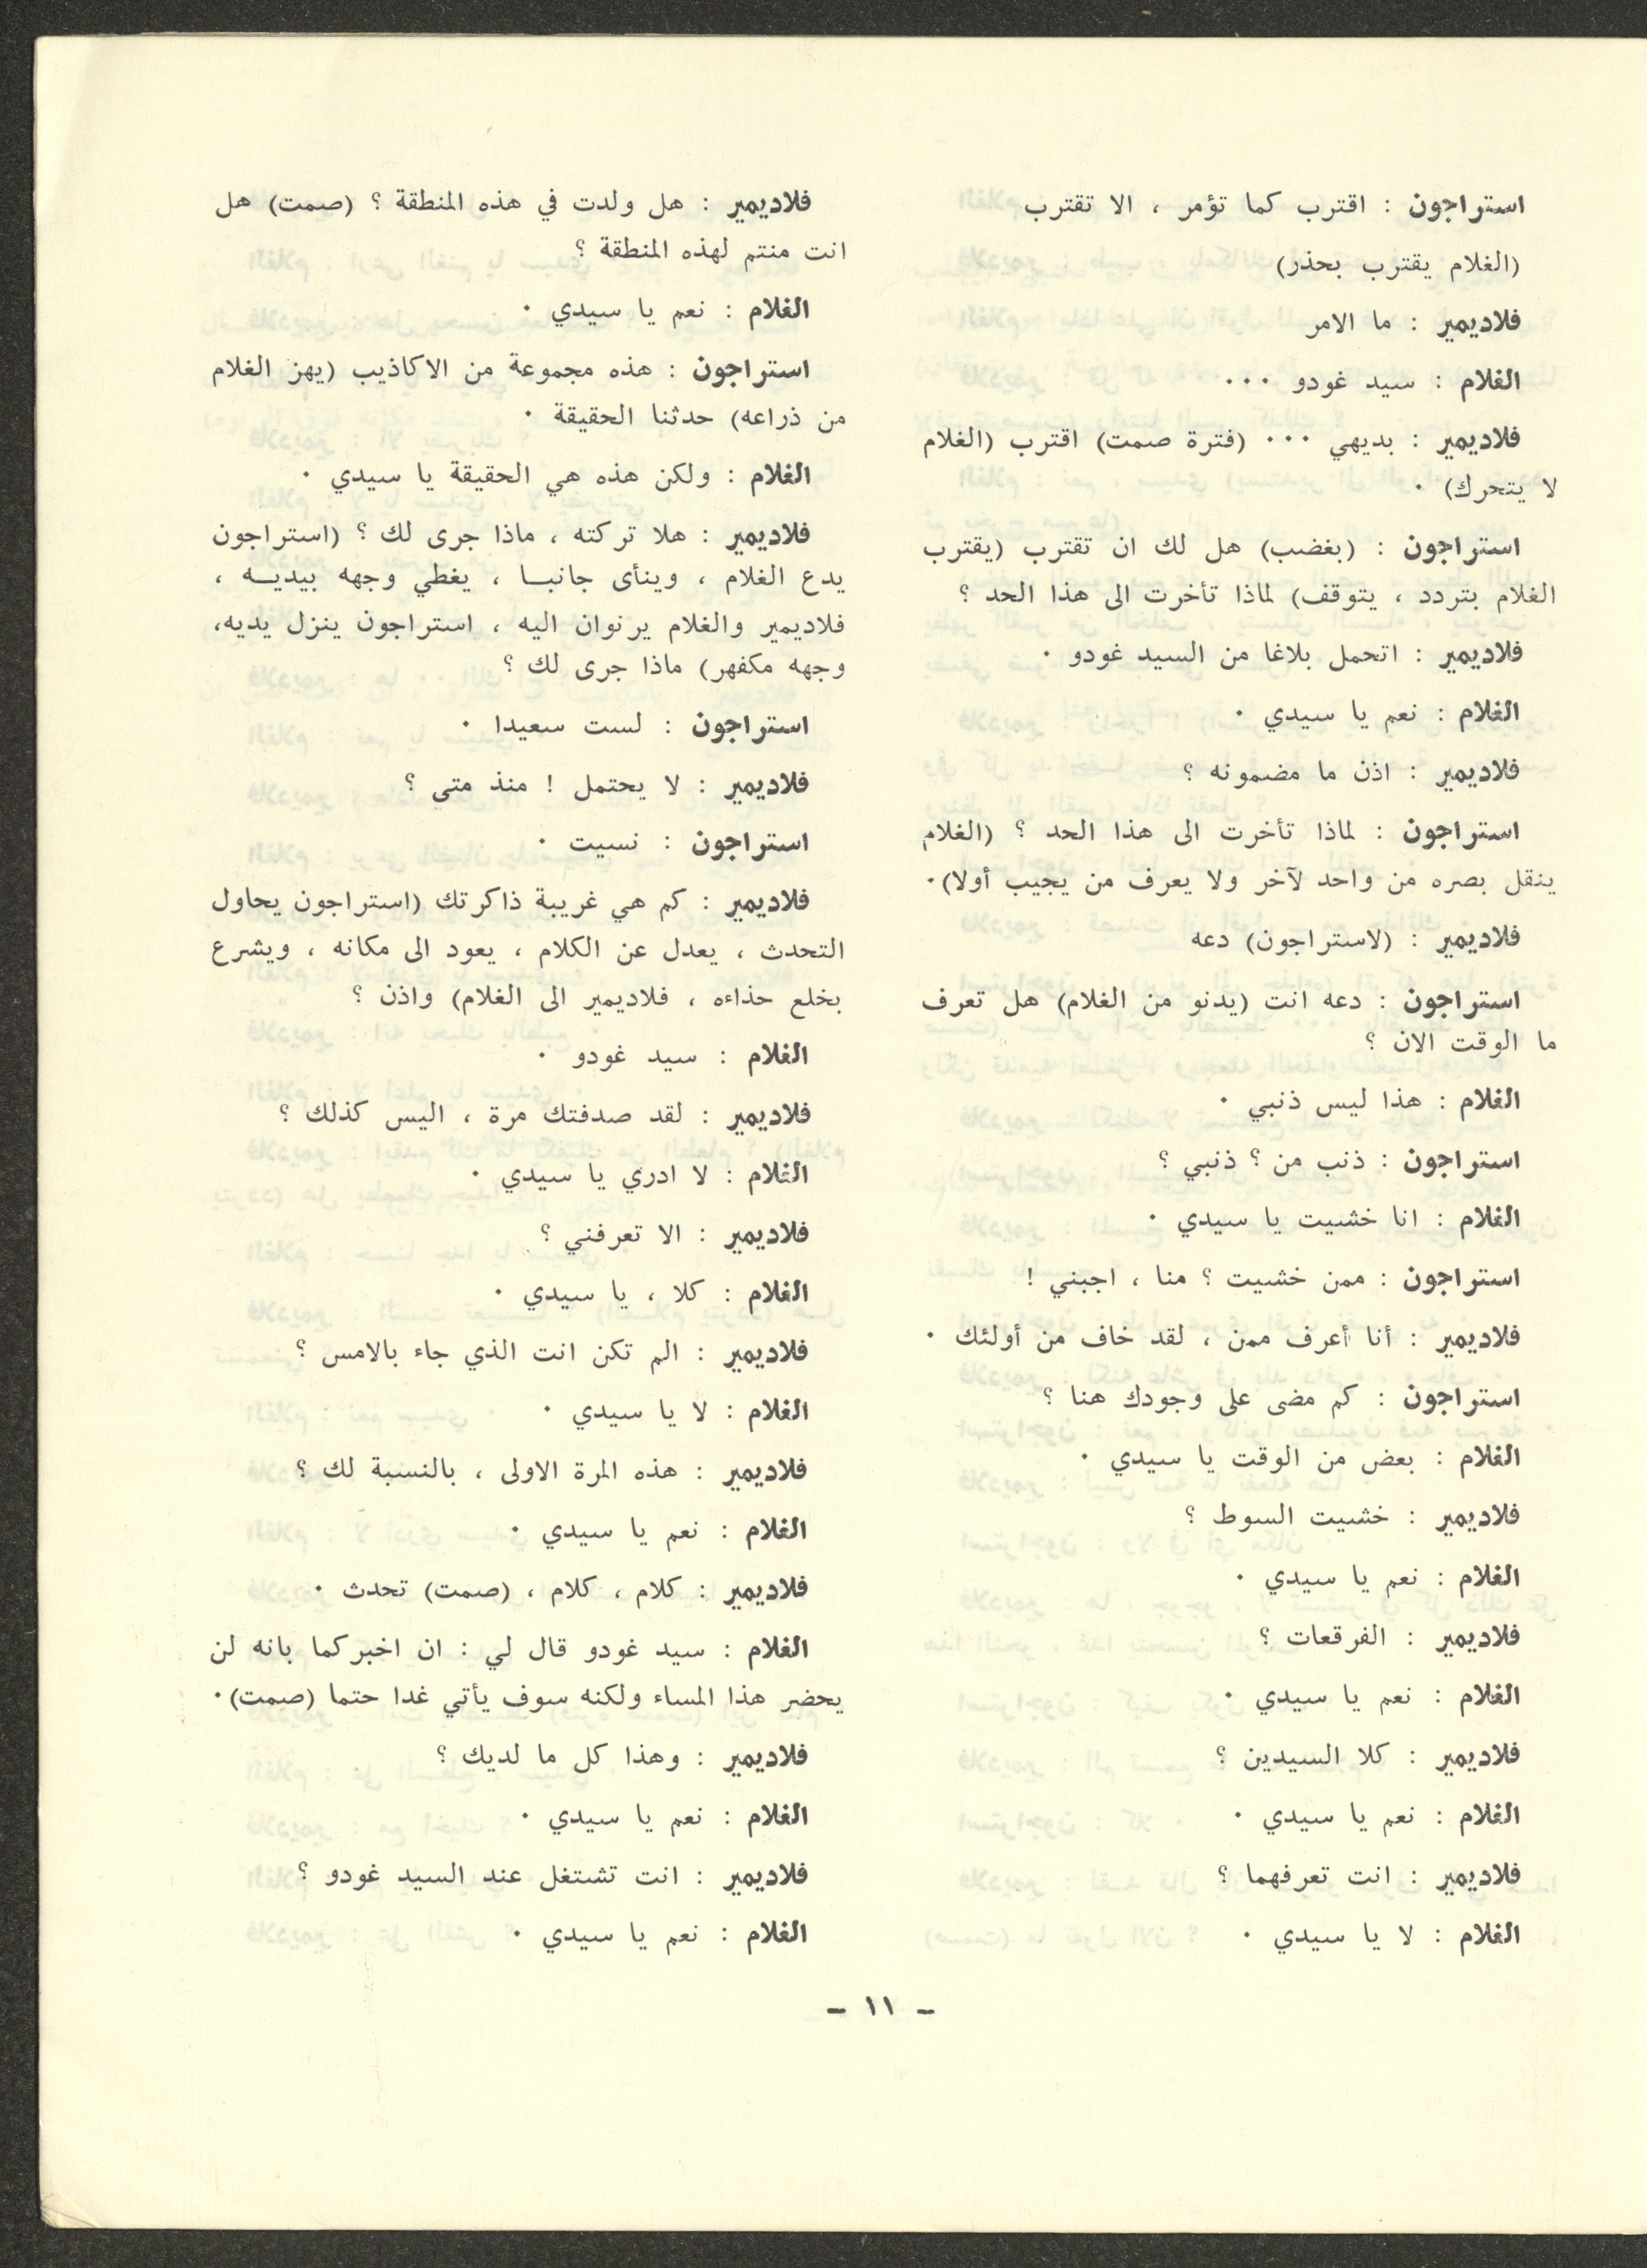 استراجون : اقترب كما تؤمر ، الا تقترب
(الغلام يقترب بحذر)
فلاديمير : ما الامر
الغلام : سيد غودو ٠٠٠
فلاديمير : بديهي ٠٠٠ (فترة صمت) اقترب (الغلام
لا يتحرك) ٠
استراجون : (بغضب) هل لك ان تقترب (يقترب
الغلام بتردد ، يتوقف) لماذا تأخرت الى هذا الحد ؟
فلاديمير : اتحمل بلاغا من السيد غودو ٠
الغلام : نعم يا سيدي ٠
فلاديمير : اذن ما مضمونه ؟
استراجون : لماذا تأخرت الى هذا الحد ؟ (الغلام
ينقل بصره من واحد لآخر ولا يعرف من يجيب أولا)٠
فلاديمير : (لاستراجون) دعه
استراجون : دعه انت (يدنو من الغلام) هل تعرف
ما الوقت الان ؟
الغلام : هذا ليس ذنبي ٠
استراجون : ذنب من ؟ ذنبي ؟
الغلام : انا خشيت يا سيدي ٠
استراجون : ممن خشيت ؟ منا ، اجبني !
فلاديمير : أنا أعرف ممن ، لقد خاف من أولئك ٠
استراجون : كم مضى على وجودك هنا ؟
الغلام : بعض من الوقت يا سيدي ٠
فلاديمير : خشيت السوط ؟
الغلام : نعم يا سيدي ٠
فلاديمير : الفرقعات ؟
الغلام : نعم يا سيدي ٠
فلاديمير : كلا السيدين ؟
الغلام : نعم يا سيدي ٠
فلاديمير : انت تعرفهما ؟
الغلام : لا يا سيدي ٠
فلاديمير : هل ولدت في هذه المنطقة ؟ (صمت) هل
انت منتم لهذه المنطقة ؟
الغلام : نعم يا سيدي ٠
استراجون : هذه مجموعة من الاكاذيب (يهز الغلام
من ذراعه) حدثنا الحقيقة ٠
الغلام : ولكن هذه هي الحقيقة يا سيدي ٠
فلاديمير : هلا تركته ، ماذا جرى لك ؟ (استراجون
يدع الغلام ، وينأى جانبـا ، يغطي وجهه بيديــه ،
فلاديمير والغلام يرنوان اليه ، استراجون ينزل يديه،
وجهه مكفهر) ماذا جرى لك ؟
استراجون : لست سعيدا ٠
فلاديمير : لا يحتمل ! منذ متى ؟
استراجون : نسيت ٠
فلاديمير : كم هي غريبة ذاكرتك (استراجون يحاول
التحدث ، يعدل عن الكلام ، يعود الى مكانه ، ويشرع
بخلع حذاءه ، فلاديمير الى الغلام) واذن ؟
الغلام : سيد غودو ٠
فلاديمير : لقد صدفتك مرة ، اليس كذلك ؟
الغلام : لا ادري يا سيدي ٠
فلاديمير : الا تعرفني ؟
الغلام : كلا ، يا سيدي ٠
فلاديمير : الم تكن انت الذي جاء بالامس ؟
الغلام : لا يا سيدي ٠
فلاديمير : هذه المرة الاولى ، بالنسبة لك ؟
الغلام : نعم يا سيدي ٠
فلاديمير : كلام ، كلام ، (صمت) تحدث ٠
الغلام : سيد غودو قال لي : ان اخبركما بانه لن
يحضر هذا المساء ولكنه سوف يأتي غدا حتما (صمت)٠
فلاديمير : وهذا كل ما لديك ؟
الغلام : نعم يا سيدي ٠
فلاديمير : انت تشتغل عند السيد غودو ؟
الغلام : نعم يا سيدي ٠
– ١١ –